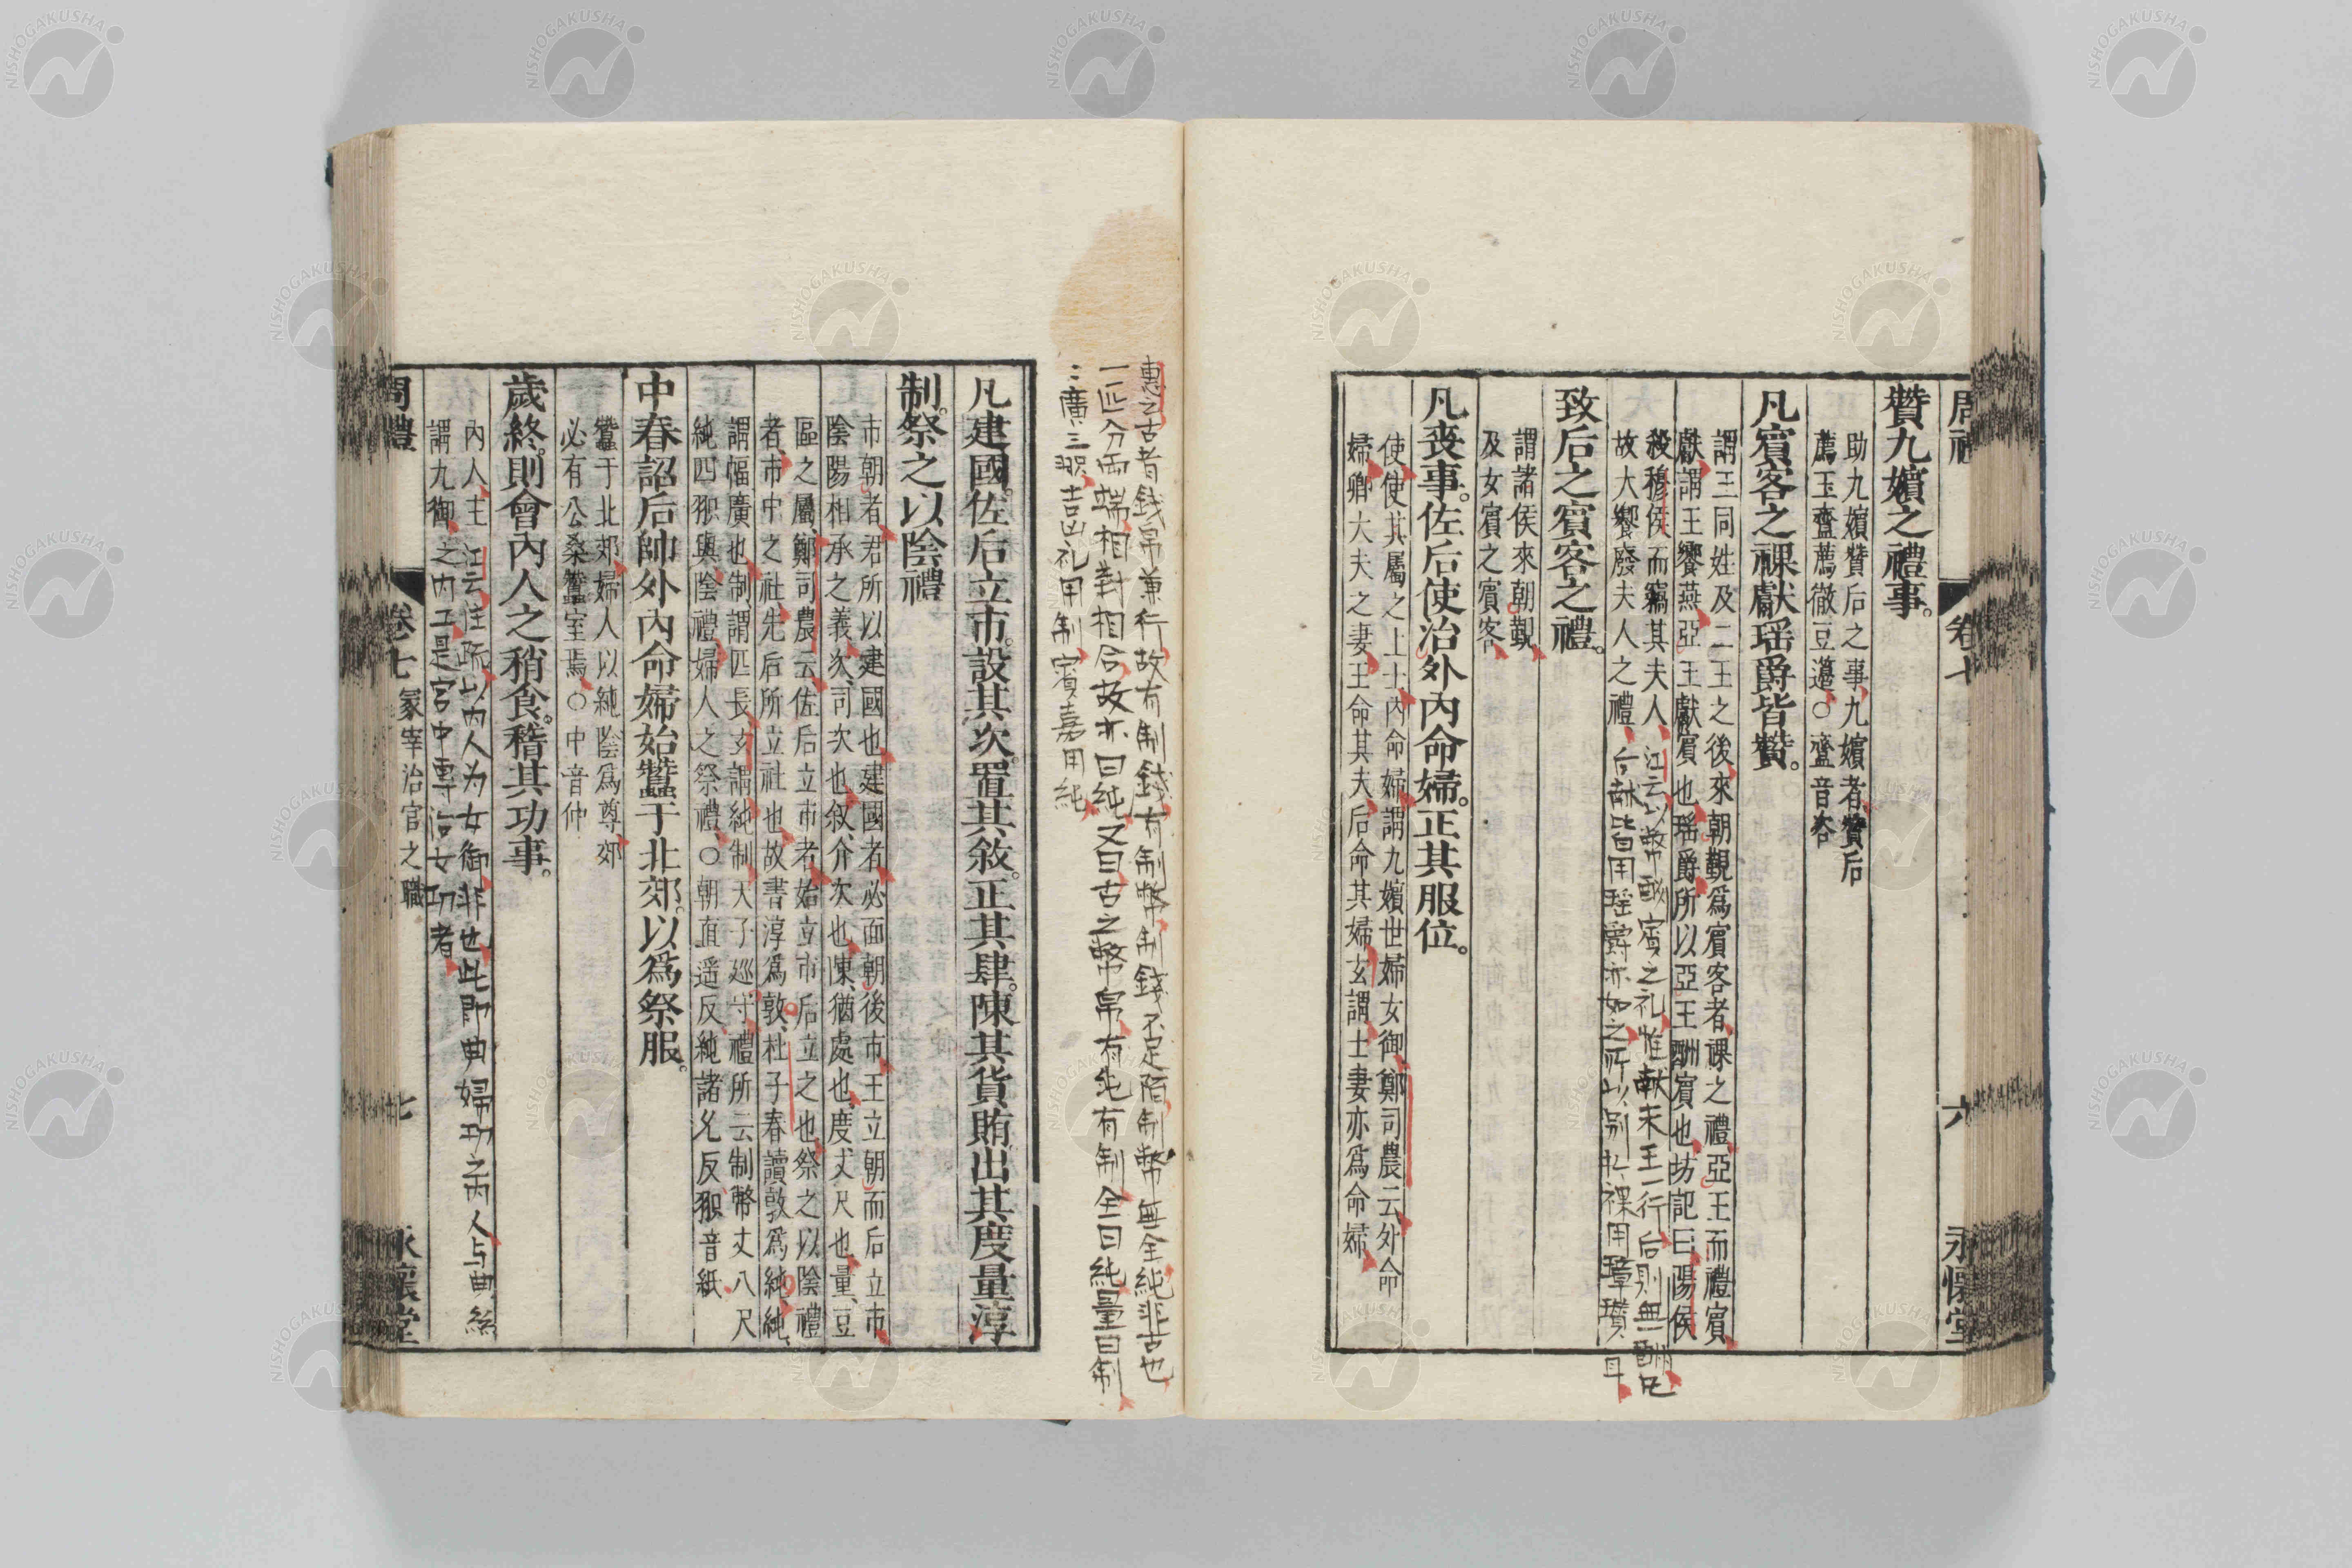 周禮 卷七 六 永懷堂
贊九嬪之禮事。
助九嬪贊后之事九嬪者贊后
薦玉齍薦徹豆籩○齍音咨
凡賓客之祼獻瑤爵皆贊。
謂王同姓及二王之後來朝覲爲賓客者祼之禮亞王而禮賓
獻謂王饗燕亞王獻賓也瑤爵所以亞王酬賓也坊記曰陽侯
殺穆侯而竊其夫人 江云以幣酬賓之礼惟献末王一行后則無酬兄
故大饗廢夫人之禮 后献皆用瑤爵亦如之所以别於祼用璋瓚耳
致后之賓客之禮。
謂諸侯來朝覲
及女賓之賓客
凡喪事。佐后使治外內命婦。正其服位。
使使其屬之上士內命婦謂九嬪世婦女御鄭司農云外命
婦卿大夫之妻王命其夫后命其婦玄謂士妻亦爲命婦
惠云古者錢帛兼行故有制錢有制幣制錢不足陌制幣無全純非古也
一匹分两端相對相合故亦曰純又曰古之幣帛有純有制全曰純量曰制
：廣三咫吉凶礼用制賓嘉用純
凡建國。佐后立市。設其次。置其敘。正其肆。陳其貨賄。出其度量淳
制。祭之以陰禮
市朝者君所以建國也建國者必面朝後市王立朝而后立市
陰陽相承之義次司次也敘介次也陳猶處也度丈尺也量豆
區之屬鄭司農云佐后立市者始立市后立之也祭之以陰禮
者市中之社先后所立社也故書淳爲敦杜子春讀敦爲純純
謂幅廣也制謂匹長玄謂純制天子巡守禮所云制幣丈八尺
純四咫與陰禮婦人之祭禮○朝直遥反純諸允反咫音紙
中春詔后帥外內命婦始蠶于北郊。以爲祭服。
蠶于北郊婦人以純陰爲尊郊
必有公桑蠶室焉○中音仲
歲終。則會內人之稍食。稽其功事。
內人主 江云注疏以内人为女御非也此即典婦功之内人与典絲
謂九御 之内工是宫中專治女功者
周禮 卷七 冢宰治官之職 七 永懷堂